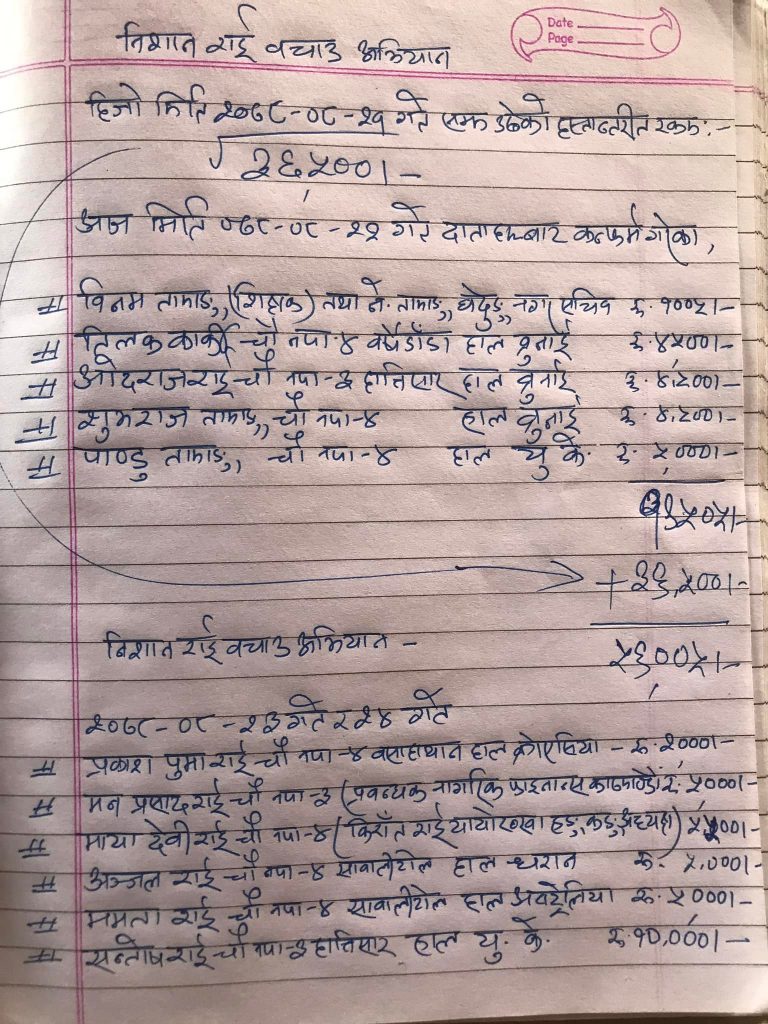 Date
Page
निशान राई बचाउ अभियान
हिजो मिति २०७८-०८-२१ गते सम्म उठेको हस्तान्तरीत रकम:-
३६,५००।-
आज मिति ०७८-०८-२२ गते दाताहरुबाट कन्फर्म गरेका,
# विनम तामाङ, (शिक्षक) तथा ने. तामाङ घेदुङ नगर सचिव रु. १००५।-
# तिलक कार्की चौ नपा-४ हाल ब्रुनाई रु. ४५००।-
# ओदराज राई चौ नपा-३ हात्तिसार हाल ब्रुनाई रु. ४,५००।-
# शुभराज तामाङ, चौ नपा-४ हाल ब्रुनाई रु. ४,५००।-
# पाण्डु तामाङ, चौ नपा-४ हाल यु के. रु. ५,०००।-
+
५६००५।-
निशान राई बचाउ अभियान -
२०७८-०८-२३ गते र २४ गते
# प्रकाश पुमा राई चौ नपा-४ हाल क्रोएसिया - रु. २०००।-
# मन प्रसाद राई चौ नपा-३ (प्रबन्धक नागरिक फाइनान्स काठमाण्डौ) रु. ५०००।-
# माया देवी राई चौ नपा-४ (किराँत राई यायोक्खा
# अञ्जल राई चौ नपा-४ सावालीटोल हाल धरान रु. ५,०००।-
# ममता राई चौ नपा-४ सावालीटोल हाल अष्ट्रेलिया रु. ५०००।-
# सन्तोष राई चौ नपा-३ हात्तिसार हाल यु. के. रु. १०,०००।-